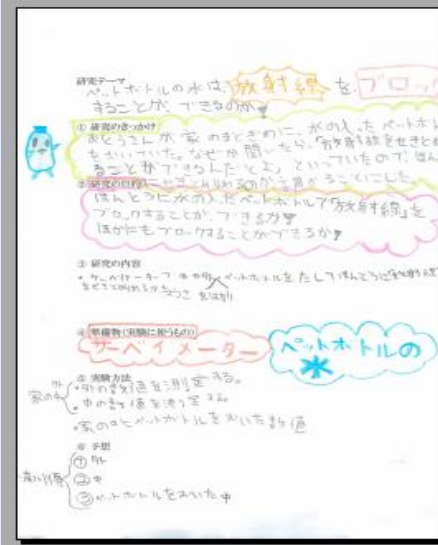 研究テーマ
ペットボトルの水は、放射線を、ブロッ
することが、できるのか
① 研究のきっかけ
おとうさんが家のまどぎわに、水の入ったペットボト
をおいていた。なぜか聞いたら、「放射線をせきとめ
ることができるんだよ」といっていたので、ほん
② 研究の目的
ほんとうに水の入ったペットボトルで「放射線」を
ブロックすることが、できるか
ほかにもブロックすることができるか
③ 研究の内容
ペットボトルをたして、ほんとうに放射線
④ 準備物(実験に使うもの)
サーベイメーター ペットボトルの
水
⑤ 実験方法
家の 外 ・外の数値を測定する。
・中の数値を測定する。
・家の中とペットボトルをおいた数値
⑥ 予想
高い順番
① 外
② 中
③ ペットボトルをおいた中